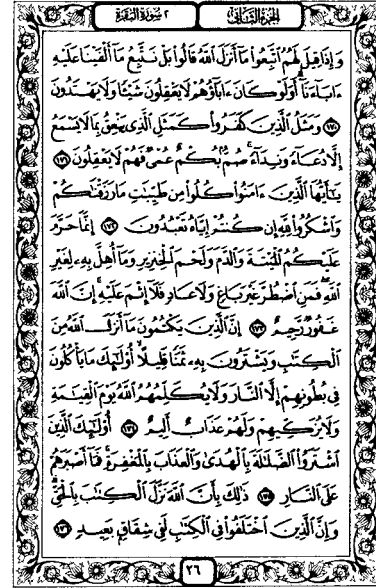 الجزء الثاني
٢ سورة البقرة
وَإِذَا قِيلَ لَهُمُ ٱتَّبِعُوا۟ مَآ أَنزَلَ ٱللَّهُ قَالُوا۟ بَلْ نَتَّبِعُ مَآ أَلْفَيْنَا عَلَيْهِ
ءَابَآءَنَآ أَوَلَوْ كَانَ ءَابَآؤُهُمْ لَا يَعْقِلُونَ شَيْـًٔا وَلَا يَهْتَدُونَ
﴿١٧٠﴾ وَمَثَلُ ٱلَّذِينَ كَفَرُوا۟ كَمَثَلِ ٱلَّذِى يَنْعِقُ بِمَا لَا يَسْمَعُ
إِلَّا دُعَآءً وَنِدَآءً صُمٌّۢ بُكْمٌ عُمْىٌ فَهُمْ لَا يَعْقِلُونَ ﴿١٧١﴾
يَـٰٓأَيُّهَا ٱلَّذِينَ ءَامَنُوا۟ كُلُوا۟ مِن طَيِّبَـٰتِ مَا رَزَقْنَـٰكُمْ
وَٱشْكُرُوا۟ لِلَّهِ إِن كُنتُمْ إِيَّاهُ تَعْبُدُونَ ﴿١٧٢﴾ إِنَّمَا حَرَّمَ
عَلَيْكُمُ ٱلْمَيْتَةَ وَٱلدَّمَ وَلَحْمَ ٱلْخِنزِيرِ وَمَآ أُهِلَّ بِهِۦ لِغَيْرِ
ٱللَّهِ فَمَنِ ٱضْطُرَّ غَيْرَ بَاغٍ وَلَا عَادٍ فَلَآ إِثْمَ عَلَيْهِ إِنَّ ٱللَّهَ
غَفُورٌ رَّحِيمٌ ﴿١٧٣﴾ إِنَّ ٱلَّذِينَ يَكْتُمُونَ مَآ أَنزَلَ ٱللَّهُ مِنَ
ٱلْكِتَـٰبِ وَيَشْتَرُونَ بِهِۦ ثَمَنًا قَلِيلًا أُو۟لَـٰٓئِكَ مَا يَأْكُلُونَ
فِى بُطُونِهِمْ إِلَّا ٱلنَّارَ وَلَا يُكَلِّمُهُمُ ٱللَّهُ يَوْمَ ٱلْقِيَـٰمَةِ
وَلَا يُزَكِّيهِمْ وَلَهُمْ عَذَابٌ أَلِيمٌ ﴿١٧٤﴾ أُو۟لَـٰٓئِكَ ٱلَّذِينَ
ٱشْتَرَوُا۟ ٱلضَّلَـٰلَةَ بِٱلْهُدَىٰ وَٱلْعَذَابَ بِٱلْمَغْفِرَةِ فَمَآ أَصْبَرَهُمْ
عَلَى ٱلنَّارِ ﴿١٧٥﴾ ذَٰلِكَ بِأَنَّ ٱللَّهَ نَزَّلَ ٱلْكِتَـٰبَ بِٱلْحَقِّ
وَإِنَّ ٱلَّذِينَ ٱخْتَلَفُوا۟ فِى ٱلْكِتَـٰبِ لَفِى شِقَاقٍۭ بَعِيدٍ ﴿١٧٦﴾
٢٦